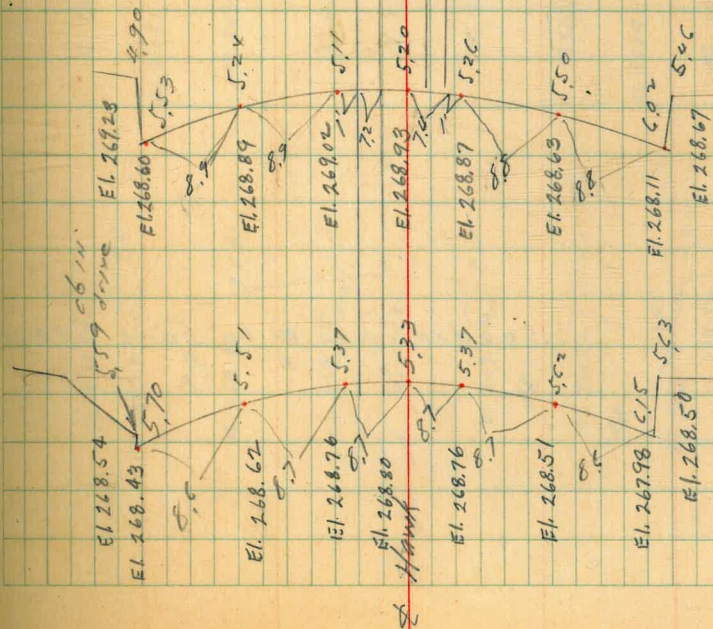 4.90
El. 269.23
5.53
El. 268.60
8.9
5.24
El. 268.89
8.9
5.11
El. 269.02
7.2
5.20
El. 268.93
5.26
El. 268.87
8.8
5.50
El. 268.63
8.8
6.02
El. 268.11
5.46
El. 268.67
5.59 drive
El. 268.54
5.70
El. 268.43
8.6
5.51
El. 268.62
8.7
5.37
El. 268.76
8.7
5.33
El. 268.80
8.7
5.37
El. 268.76
8.7
5.62
El. 268.51
8.5
6.15
El. 267.98
5.63
El. 268.50